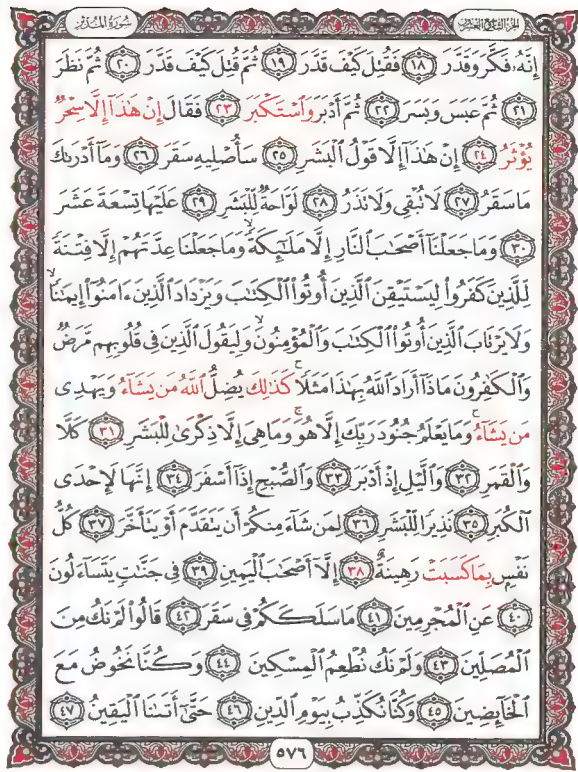 سُورَةُ المُدَّثِّر الجزء التاسع والعشرون
إِنَّهُۥ فَكَّرَ وَقَدَّرَ ١٨ فَقُتِلَ كَيْفَ قَدَّرَ ١٩ ثُمَّ قُتِلَ كَيْفَ قَدَّرَ ٢٠ ثُمَّ نَظَرَ
٢١ ثُمَّ عَبَسَ وَبَسَرَ ٢٢ ثُمَّ أَدْبَرَ وَٱسْتَكْبَرَ ٢٣ فَقَالَ إِنْ هَٰذَآ إِلَّا سِحْرٌ
يُؤْثَرُ ٢٤ إِنْ هَٰذَآ إِلَّا قَوْلُ ٱلْبَشَرِ ٢٥ سَأُصْلِيهِ سَقَرَ ٢٦ وَمَآ أَدْرَىٰكَ
مَا سَقَرُ ٢٧ لَا تُبْقِى وَلَا تَذَرُ ٢٨ لَوَّاحَةٌ لِّلْبَشَرِ ٢٩ عَلَيْهَا تِسْعَةَ عَشَرَ
٣٠ وَمَا جَعَلْنَآ أَصْحَٰبَ ٱلنَّارِ إِلَّا مَلَٰٓئِكَةً ۙ وَمَا جَعَلْنَا عِدَّتَهُمْ إِلَّا فِتْنَةً
لِّلَّذِينَ كَفَرُوا۟ لِيَسْتَيْقِنَ ٱلَّذِينَ أُوتُوا۟ ٱلْكِتَٰبَ وَيَزْدَادَ ٱلَّذِينَ ءَامَنُوٓا۟ إِيمَٰنًا ۙ
وَلَا يَرْتَابَ ٱلَّذِينَ أُوتُوا۟ ٱلْكِتَٰبَ وَٱلْمُؤْمِنُونَ ۙ وَلِيَقُولَ ٱلَّذِينَ فِى قُلُوبِهِم مَّرَضٌ
وَٱلْكَٰفِرُونَ مَاذَآ أَرَادَ ٱللَّهُ بِهَٰذَا مَثَلًا ۚ كَذَٰلِكَ يُضِلُّ ٱللَّهُ مَن يَشَآءُ وَيَهْدِى
مَن يَشَآءُ ۚ وَمَا يَعْلَمُ جُنُودَ رَبِّكَ إِلَّا هُوَ ۚ وَمَا هِىَ إِلَّا ذِكْرَىٰ لِلْبَشَرِ ٣١ كَلَّا
وَٱلْقَمَرِ ٣٢ وَٱلَّيْلِ إِذْ أَدْبَرَ ٣٣ وَٱلصُّبْحِ إِذَآ أَسْفَرَ ٣٤ إِنَّهَا لَإِحْدَى
ٱلْكُبَرِ ٣٥ نَذِيرًا لِّلْبَشَرِ ٣٦ لِمَن شَآءَ مِنكُمْ أَن يَتَقَدَّمَ أَوْ يَتَأَخَّرَ ٣٧ كُلُّ
نَفْسٍۭ بِمَا كَسَبَتْ رَهِينَةٌ ٣٨ إِلَّآ أَصْحَٰبَ ٱلْيَمِينِ ٣٩ فِى جَنَّٰتٍ يَتَسَآءَلُونَ
٤٠ عَنِ ٱلْمُجْرِمِينَ ٤١ مَا سَلَكَكُمْ فِى سَقَرَ ٤٢ قَالُوا۟ لَمْ نَكُ مِنَ
ٱلْمُصَلِّينَ ٤٣ وَلَمْ نَكُ نُطْعِمُ ٱلْمِسْكِينَ ٤٤ وَكُنَّا نَخُوضُ مَعَ
ٱلْخَآئِضِينَ ٤٥ وَكُنَّا نُكَذِّبُ بِيَوْمِ ٱلدِّينِ ٤٦ حَتَّىٰٓ أَتَىٰنَا ٱلْيَقِينُ ٤٧
٥٧٦